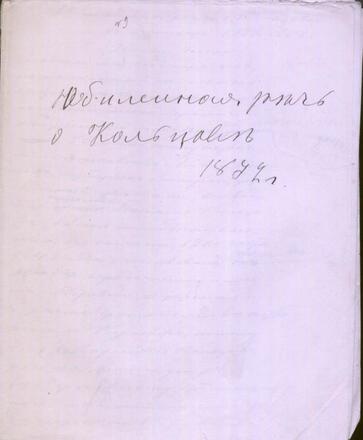 №3
Юбилейная рѣчь
о Кольцовѣ
1892 г.